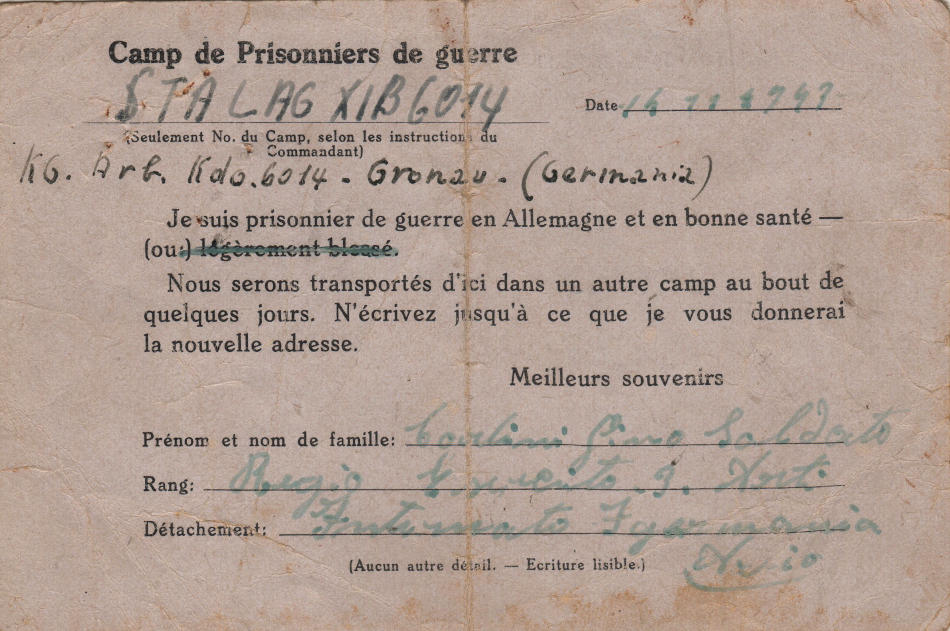 Camp de Prisonniers de guerre
STALAG XIB 6014
Date 14 11 1943
(Seulement No. du Camp, selon les instructions du
Commandant)
KG. Arb. Kdo. 6014 - Gronau - (Germania)
Je suis prisonnier de guerre en Allemagne et en bonne santé —
(ou:) légèrement blessé.
Nous serons transportés d'ici dans un autre camp au bout de
quelques jours. N'écrivez jusqu'à ce que je vous donnerai
la nouvelle adresse.
Meilleurs souvenirs
Prénom et nom de famille: Gino Soldato
Rang: Regio
Détachement: Internato
(Aucun autre détail. — Ecriture lisible.)